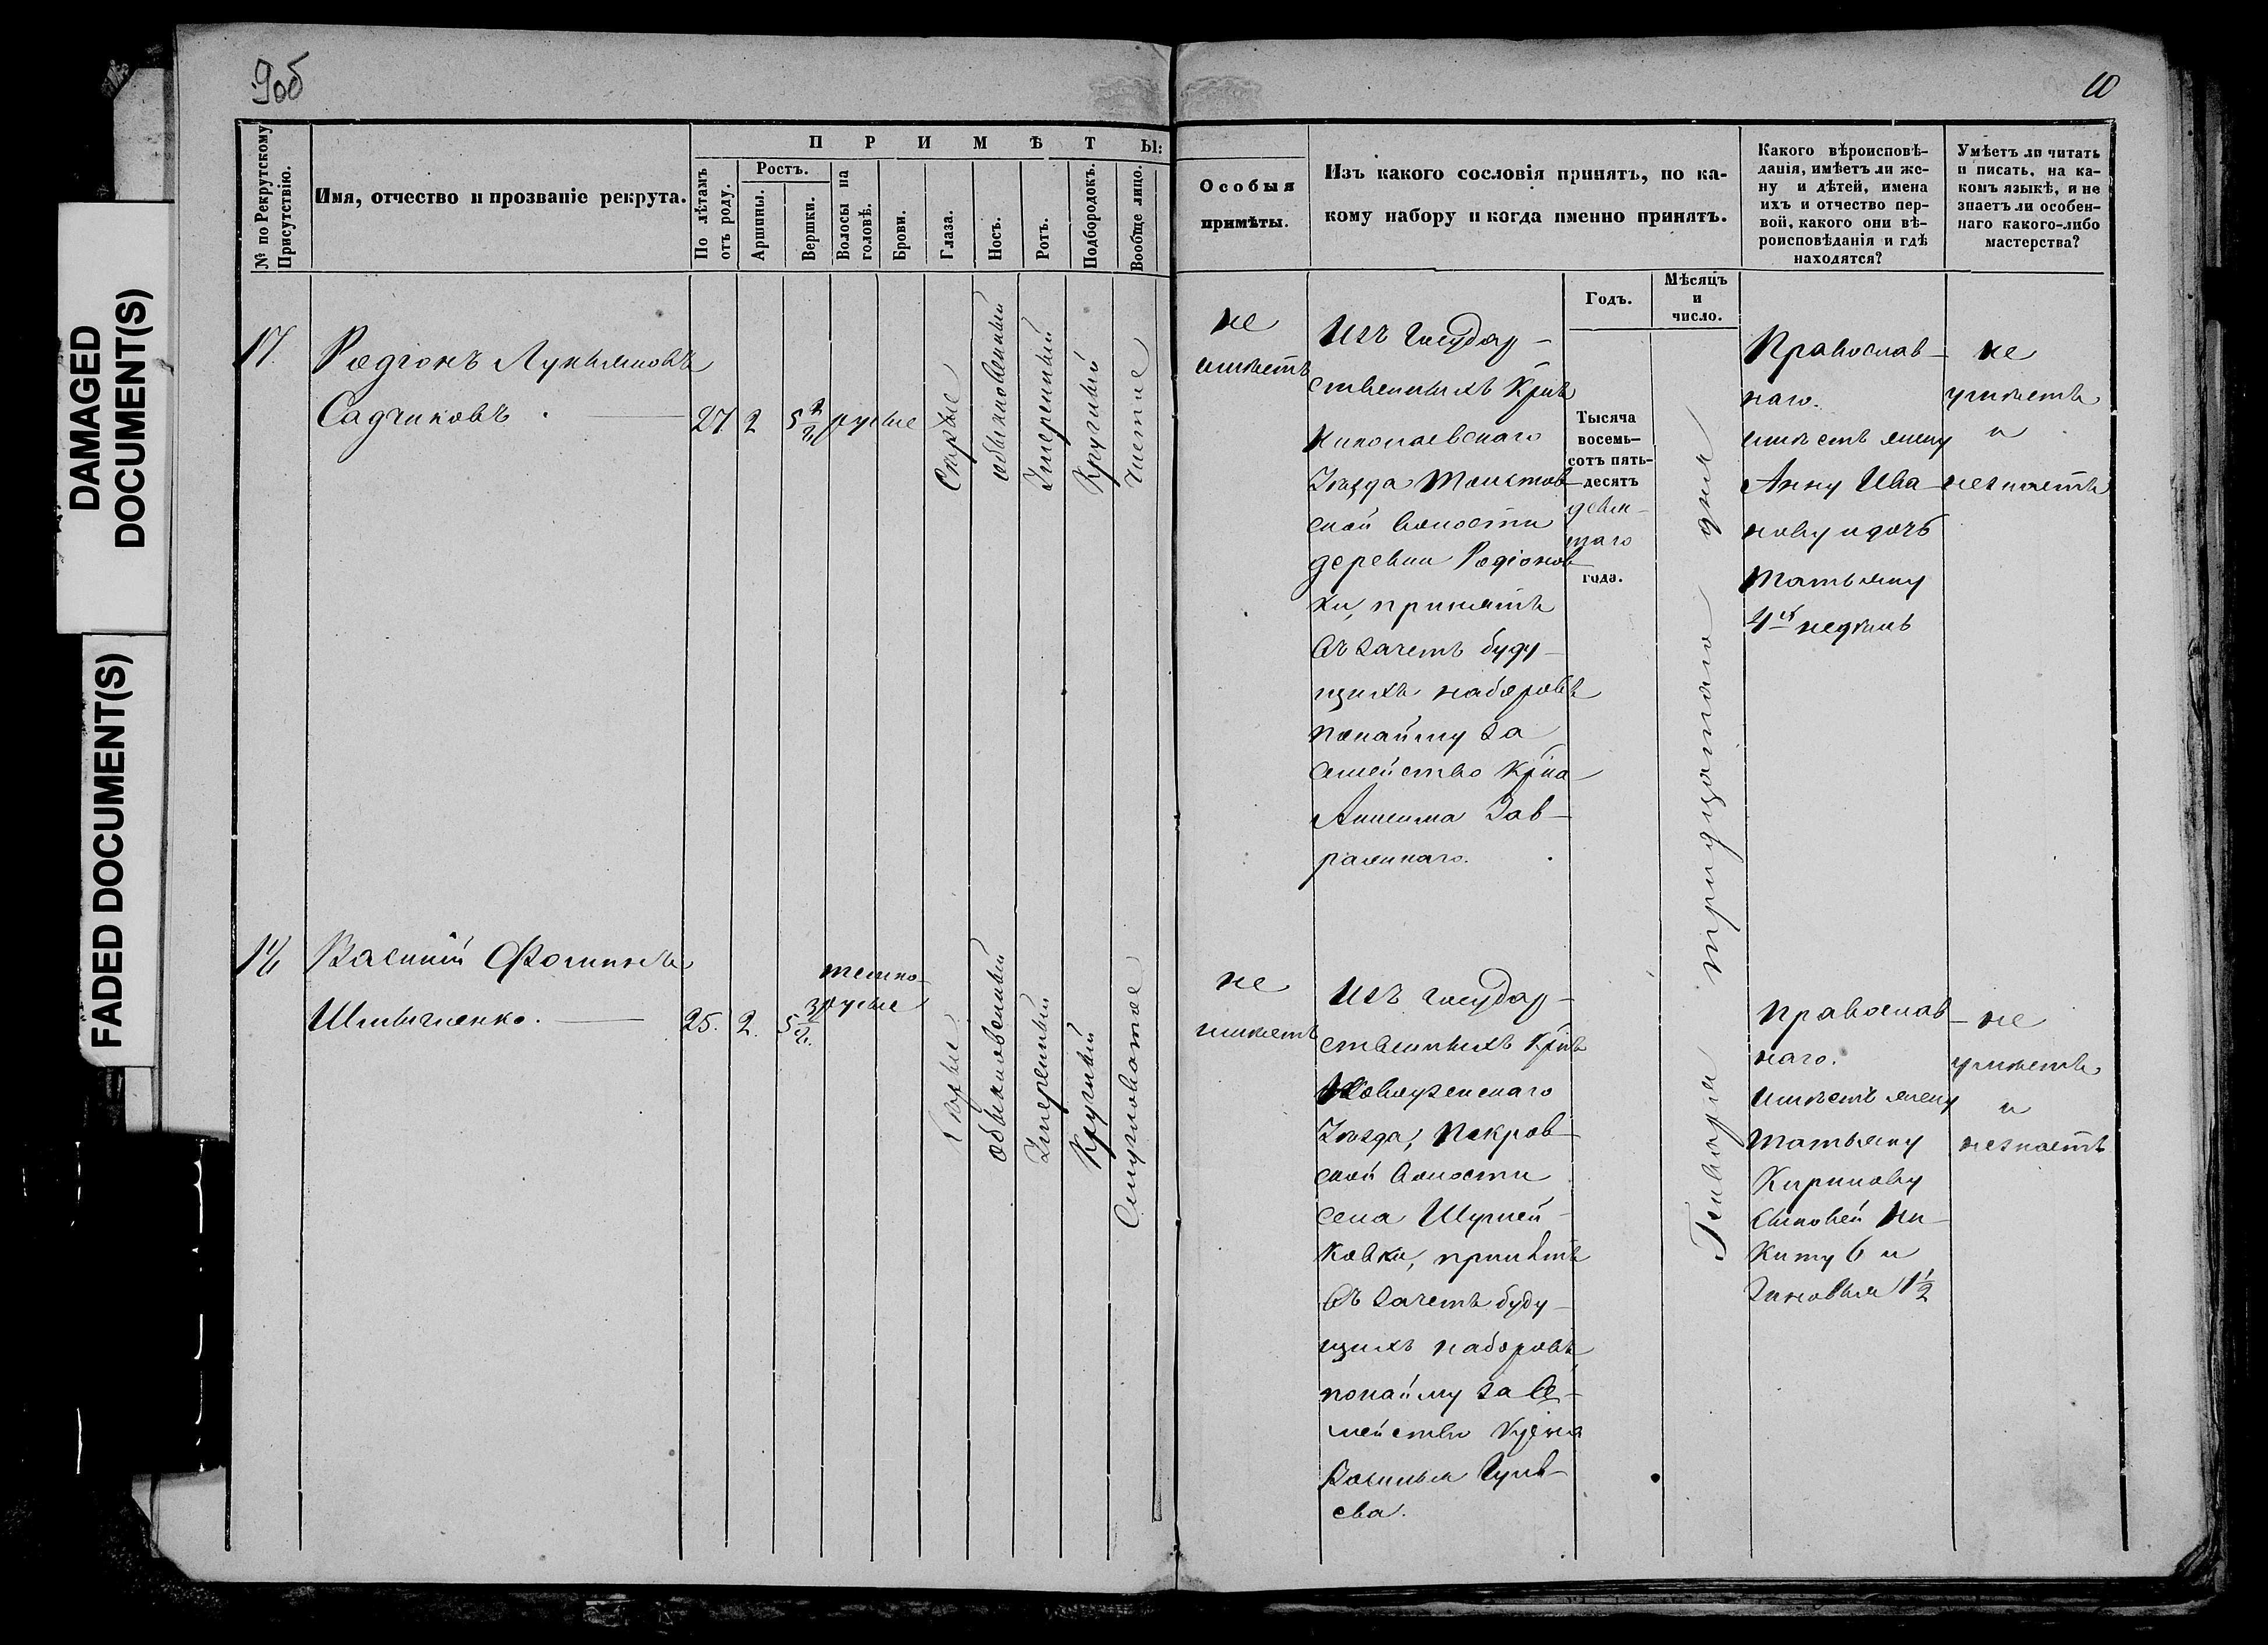 DAMAGED
DOCUMENT(S)
FADED DOCUMENT(S)
9об
10
№ по Рекрутскому
Присутствію.
Имя, отчество и прозваніе рекрута.
ПРИМѢТЫ:
По лѣтамъ
отъ роду.
Ростъ.
Аршины.
Вершки.
Волосы на
головѣ.
Брови.
Глаза.
Носъ.
Ротъ.
Подбородокъ.
Вообще лицо.
Особыя
примѣты.
Изъ какого сословія принятъ, по ка-
кому набору и когда именно принятъ.
Годъ.
Мѣсяцъ
и
число.
Какого вѣроисповѣ-
данія, имѣетъ ли же-
ну и дѣтей, имена
ихъ и отчество пер-
вой, какого они вѣ-
роисповѣданія и гдѣ
находятся?
Умѣетъ ли читать
и писать, на ка-
комъ языкѣ, и не
знаетъ ли особен-
наго какого-либо
мастерства?
17.
Родіонъ Лукьяновъ
Садчиковъ.
27
2
5 2/8
русые
Сѣрые
обыкновенный
Умѣренный
Круглый
Чистое
не
имѣетъ
Изъ Государ-
ственныхъ Кр-нъ
Николаевскаго
Уѣзда Толстов-
ской Волости
деревни Родіонов-
ки, принятъ
въ зачетъ буду-
щихъ наборовъ
по найму за
семейство Кр-на
Анисима Зав-
Тысяча
восемь-
сотъ пять-
десятъ
девя-
таго
года.
Генваря тридцатаго дня
Православ-
наго.
имѣетъ жену
Анну Ива-
нову и дочь
Татьяну
4хъ недѣль
не
умѣетъ
и
незнаетъ
18
Василій Фоминъ
25.
2.
5 3/8
темно-
русые
Карые
обыкновенный
Умѣренный
Круглый
Смугловатое
не
имѣетъ
Изъ Государ-
ственныхъ Кр-нъ
Новоузенскаго
Уѣзда, Покров-
ской Волости
села Шумей-
ковки, принятъ
въ зачетъ буду-
щихъ наборовъ
по найму за Се-
мейство Кр-на
Василья Гуль-
ева.
Православ-
наго.
имѣетъ жену
Татьяну
Кирилову
сыновей Ни-
киту 6 и
Зиновья 1 1/2
не
умѣетъ
и
незнаетъ